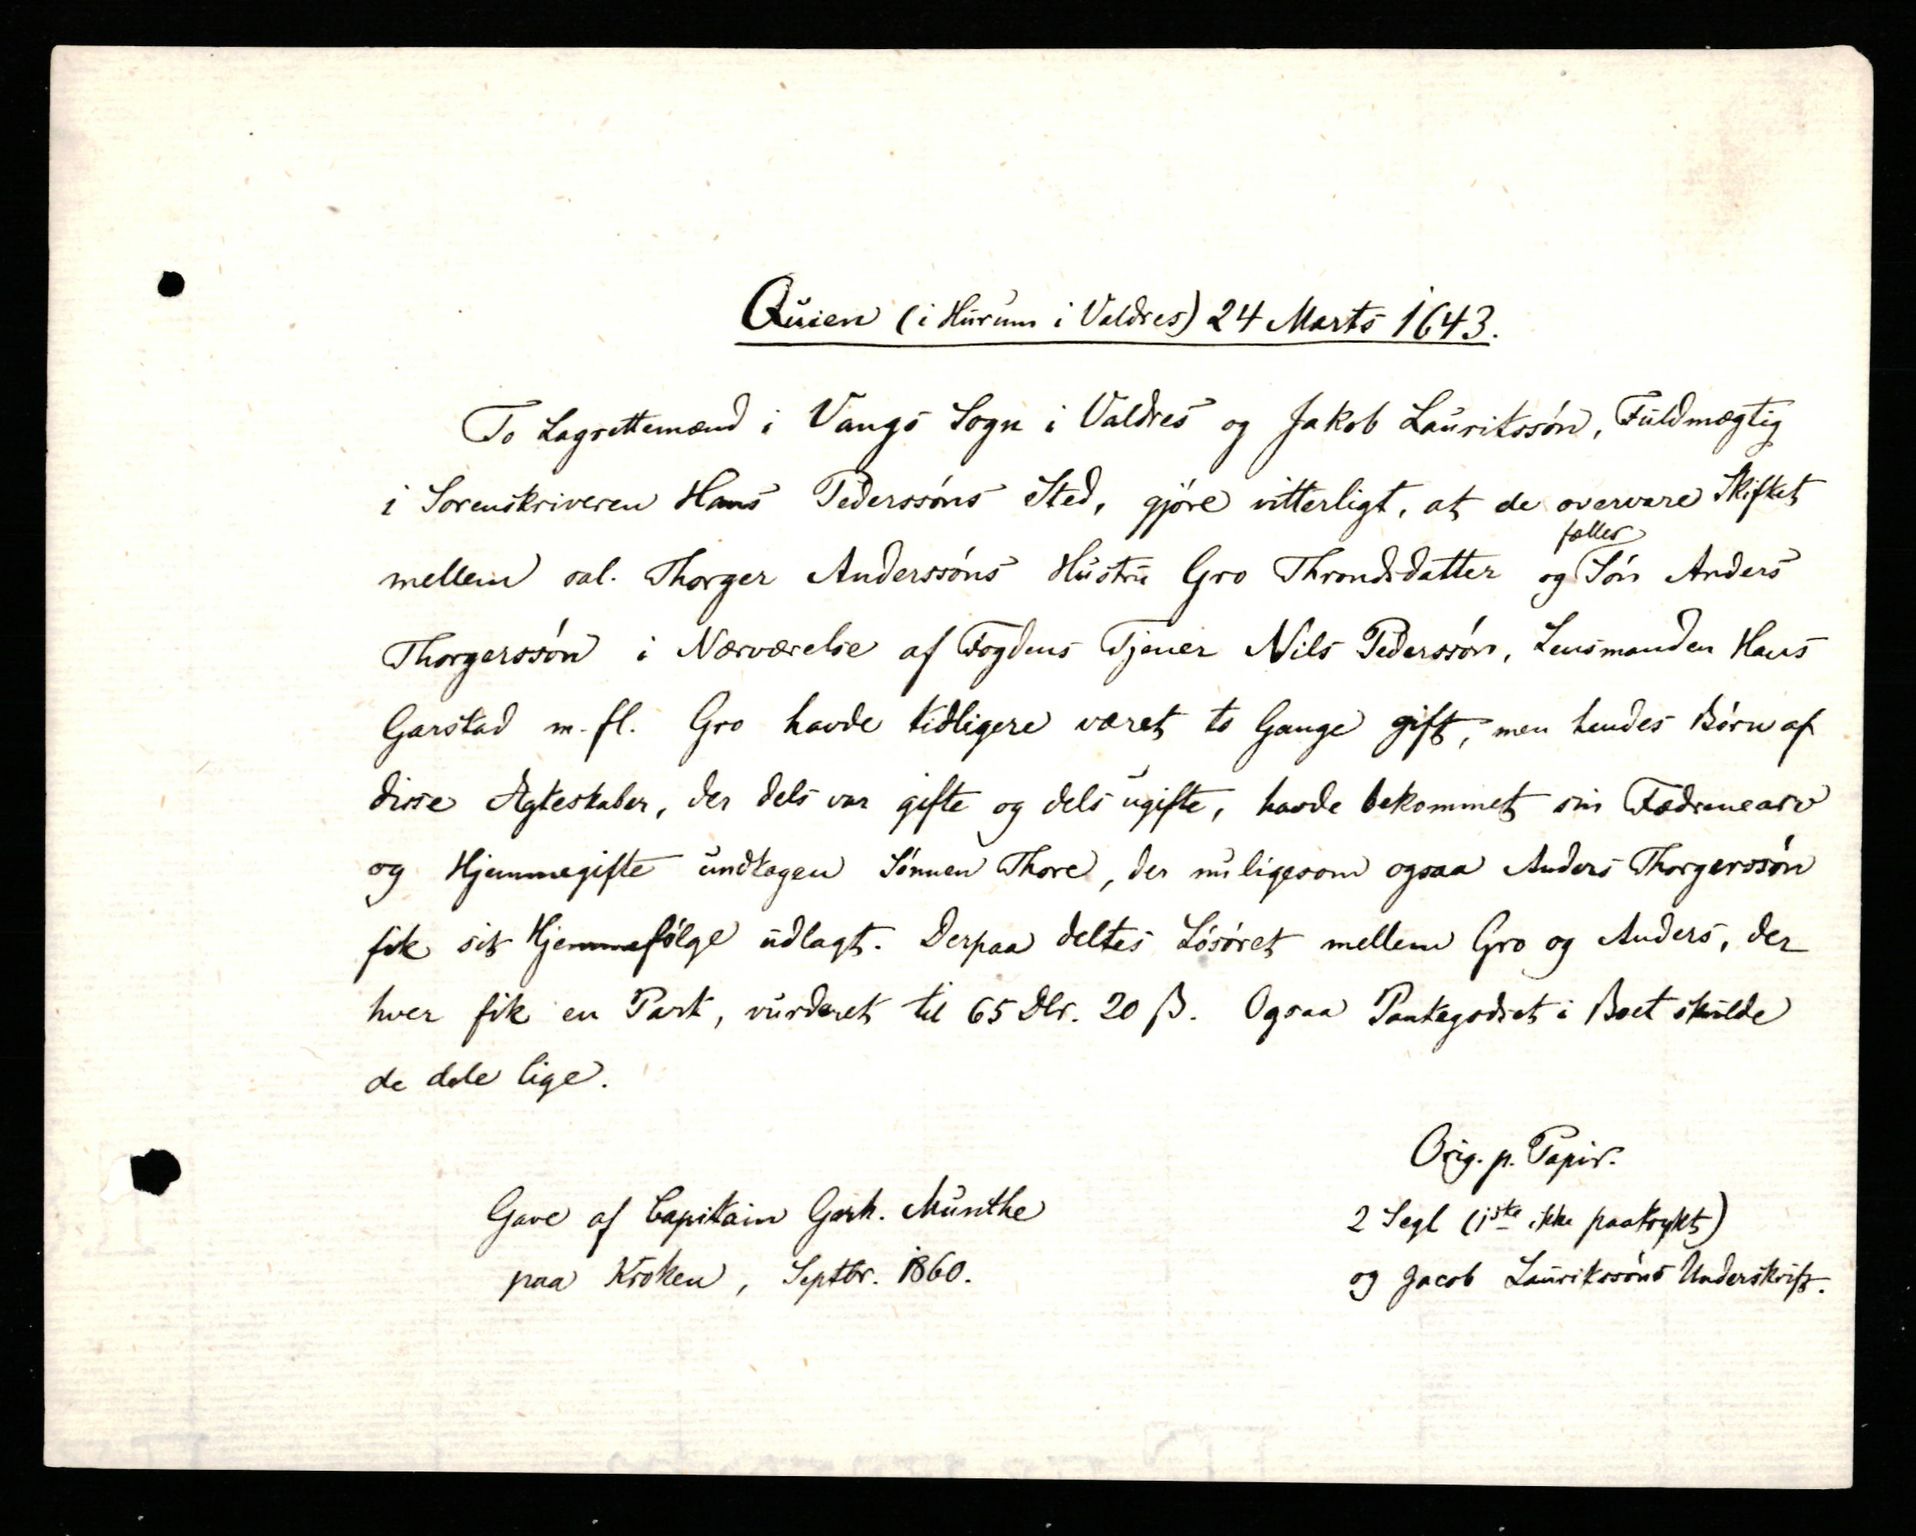 Quien (i Hurum i Valdres) 24 Marts 1643.
To Lagrettemænd i Vangs Sogn i Valdres og Jakob Lauritssøn, Fuldmægtig
i Sorenskriveren Hans Pederssøns Sted, gjøre vitterligt, at de overvare Skiftet
mellem sal. Thorger Anderssøns Hustru Gro Throndsdatter og fælles Søn Anders
Thorgerssøn i Nærværelse af Fogdens Tjener Nils Pederssøn, Lensmanden Hans
Garstad m. fl. Gro havde tidligere været to Gange gift, men hendes Børn af
disse Ægteskaber, der dels var gifte og dels ugifte, havde bekommet sin Fædrenearv
og Hjemmegifte undtagen Sønnen Thore, der nu ligesom ogsaa Anders Thorgerssøn
fik sit Hjemmefølge udlagt. Derpaa deltes Løsøret mellem Gro og Anders, der
hver fik en Part, vurderet til 65 Dlr. 20 ß. Ogsaa Pantegodset i Boet skulde
de dele lige.
Orig. p. Papir.
Gave af Capitain Gerh. Munthe
2 Segl (1ste ikke paatrykt)
paa Kroken, Septbr. 1860.
og Jacob Lauritssøns Underskrift.